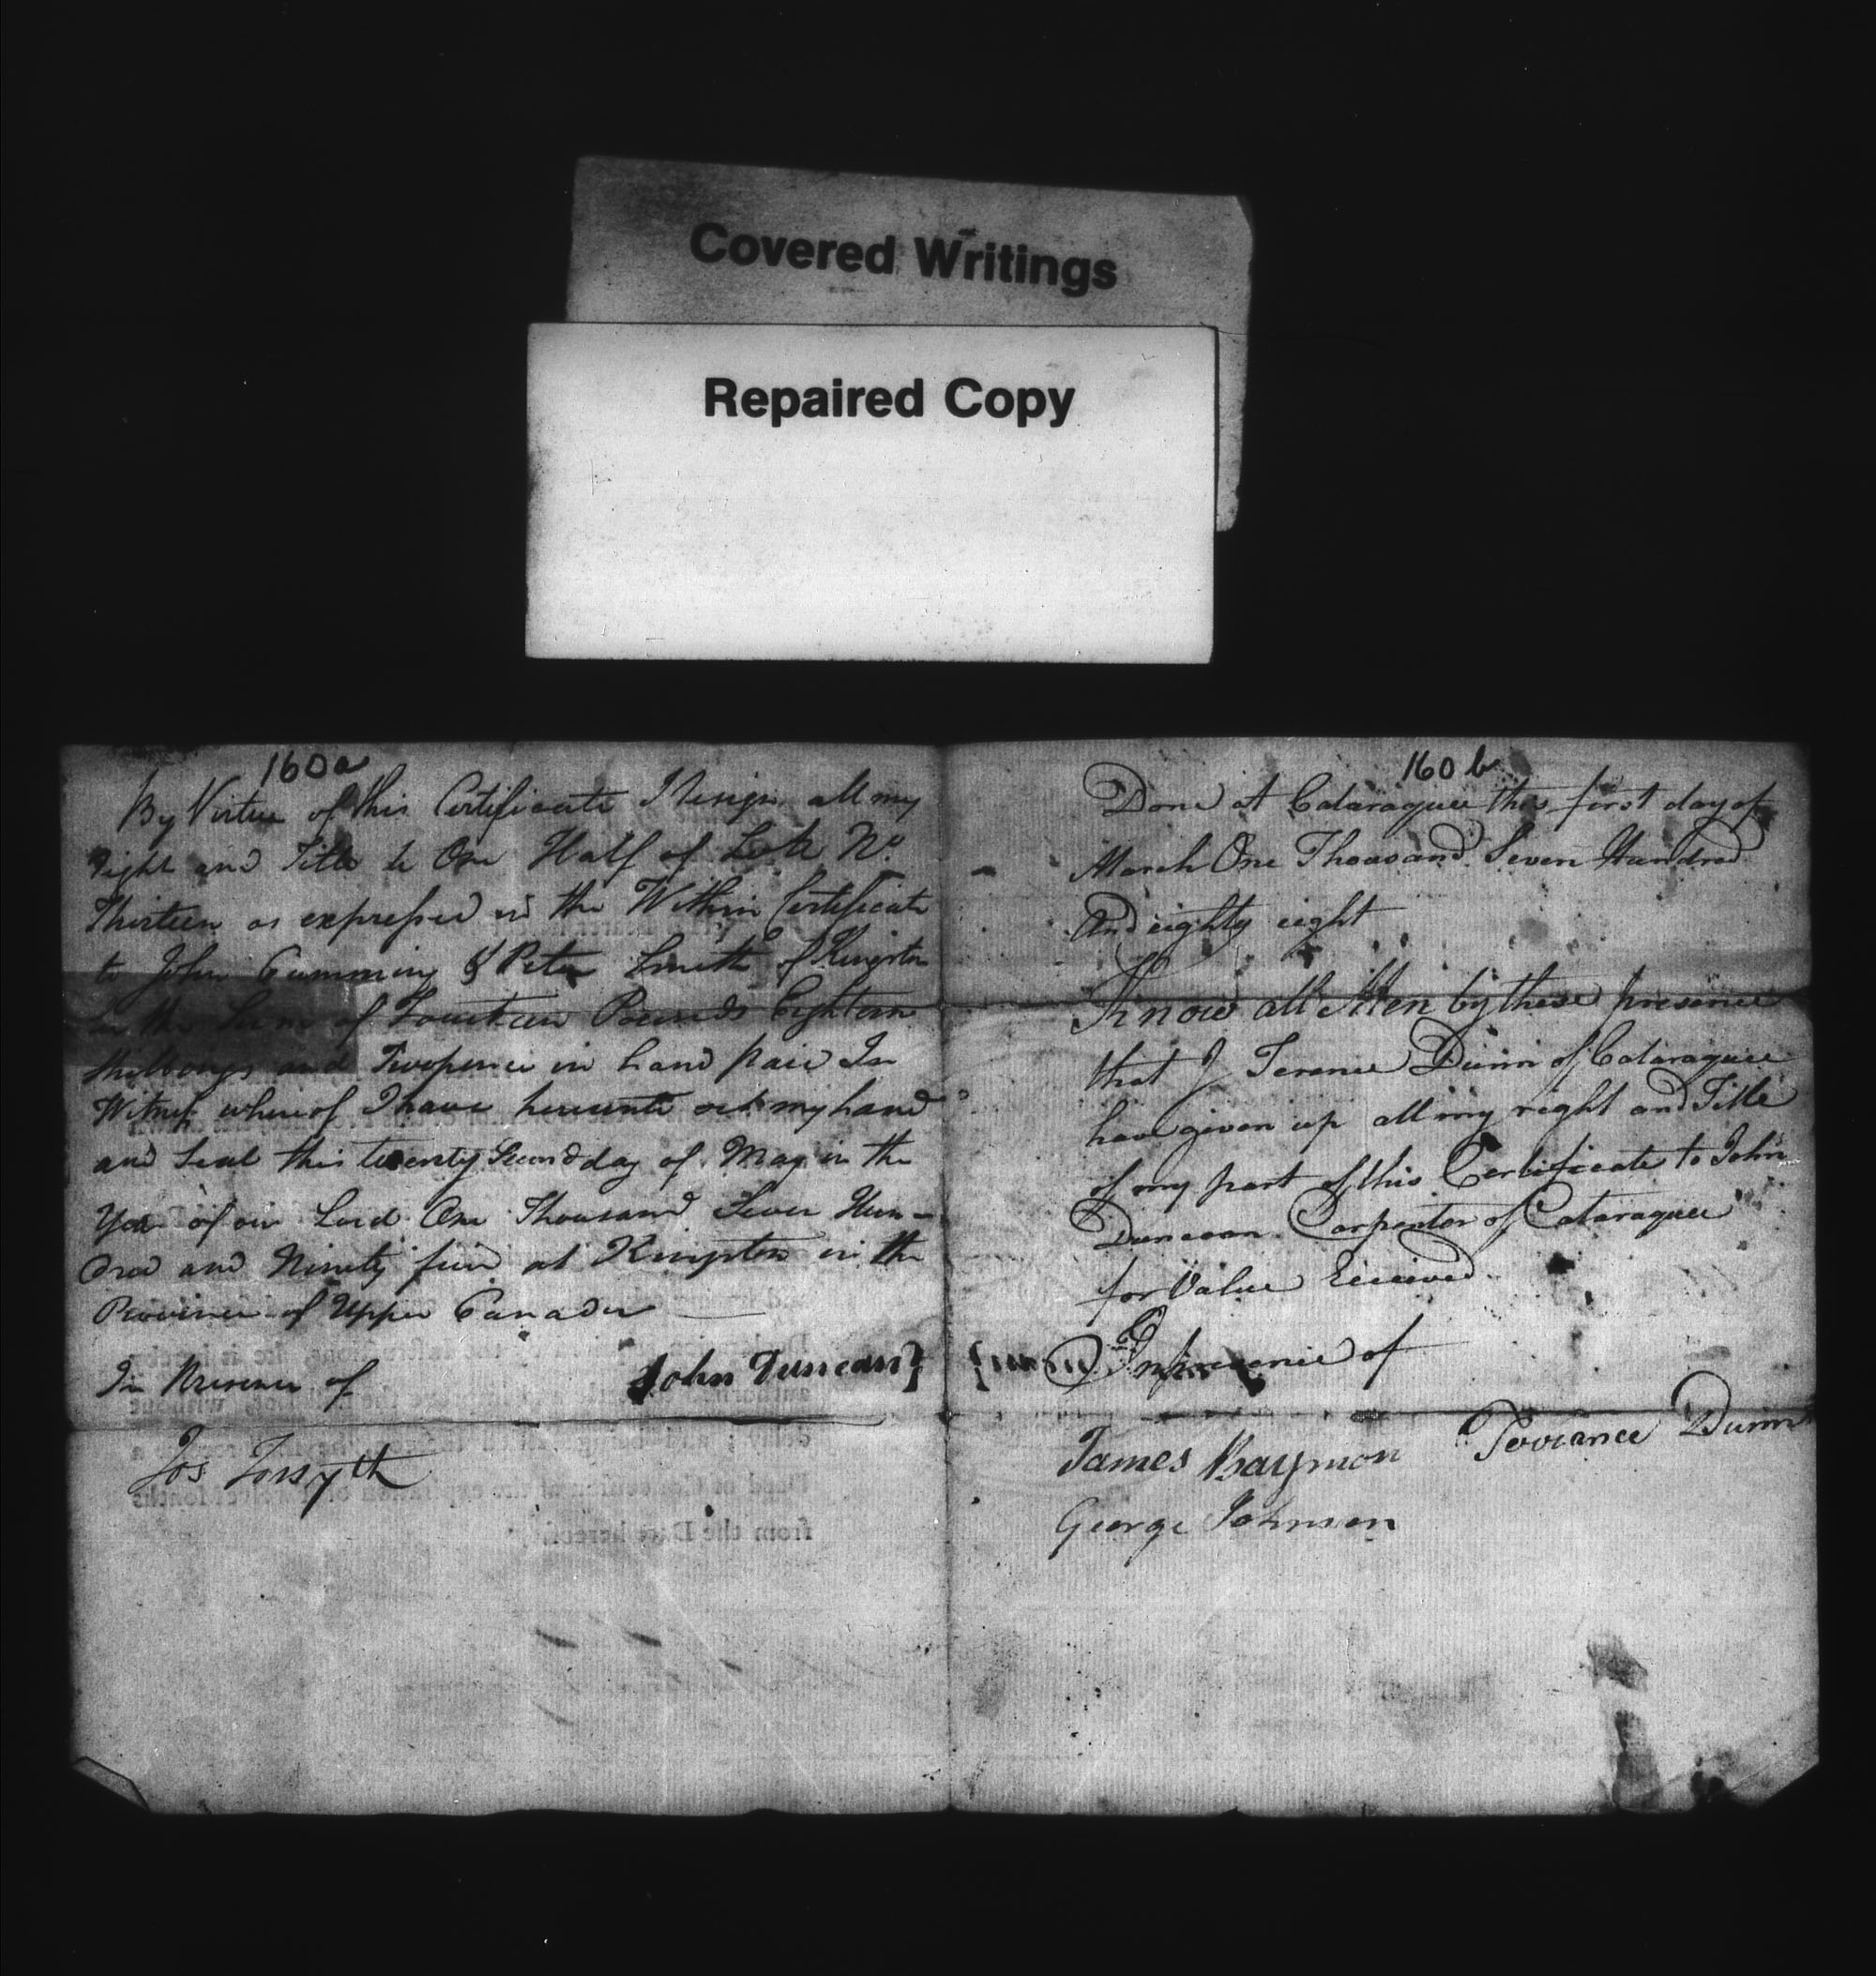 Covered Writings
Repaired Copy
160a
By Virtue of this Certificate I resign all my
right and Title to One Half of Lot No.
Thirteen as expressed in the Within Certificate
to John Cumming & Peter Smith of Kingston
the Sum of Fourteen Pounds Eighteen
Shillings and Twopence in hand paid In
Witness whereof I have hereunto set my hand
and Seal this twenty Second day of May in the
Year of our Lord One Thousand Seven Hun-
dred and Ninety five at Kingston in the
Province of Upper Canada
In Presence of John Duncan}
Jos Forsyth
160b
Done at Cataraquee this first day of
March One Thousand Seven Hundred
And eighty eight
Know all Men by these presence
that I Terence Dunn of Cataraquee
have given up all my right and Title
of my part of this Certificate to John
Duncan Carpenter of Cataraquee
for Value Received
In presence of
James Raymon Terrance Dunn
George Johnson